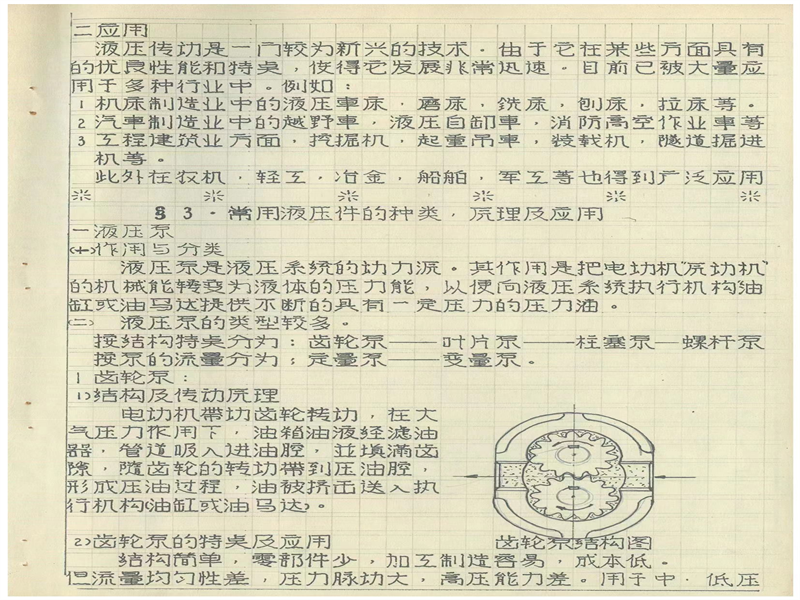 二应用
液压传动是一门较为新兴的技术。由于它在某些方面具有
的优良性能和特点，使得它发展非常迅速。目前已被大量应
用于多种行业中。例如：
1 机床制造业中的液压車床，磨床，銑床，刨床，拉床等。
2 汽車制造业中的越野車，液压自卸車，消防高空作业車等
3 工程建筑业方面，挖掘机，起重吊車，装载机，隧道掘进
机等。
此外在农机，轻工，冶金，船舶，军工等也得到广泛应用
§3·常用液压件的种类，原理及应用
一液压泵
(一)作用与分类
液压泵是液压系统的动力源。其作用是把电动机"原动机"
的机械能转变为液体的压力能，以便向液压系统执行机构油
缸或油马达提供不断的具有一定压力的压力油。
(二) 液压泵的类型较多。
按结构特点分为：齿轮泵——叶片泵——柱塞泵—螺杆泵
按泵的流量分为：定量泵——变量泵。
1 齿轮泵：
1)结构及传动原理
电动机带动齿轮转动，在大
气压力作用下，油箱油液经滤油
器，管道吸入进油腔，並填满齿
隙，随齿轮的转动带到压油腔，
形成压油过程，油被挤出送入执
行机构(油缸或油马达)。
2)齿轮泵的特点及应用
齿轮泵结构图
结构简单，零部件少，加工制造容易，成本低。
但流量均匀性差，压力脉动大，高压能力差。用于中·低压